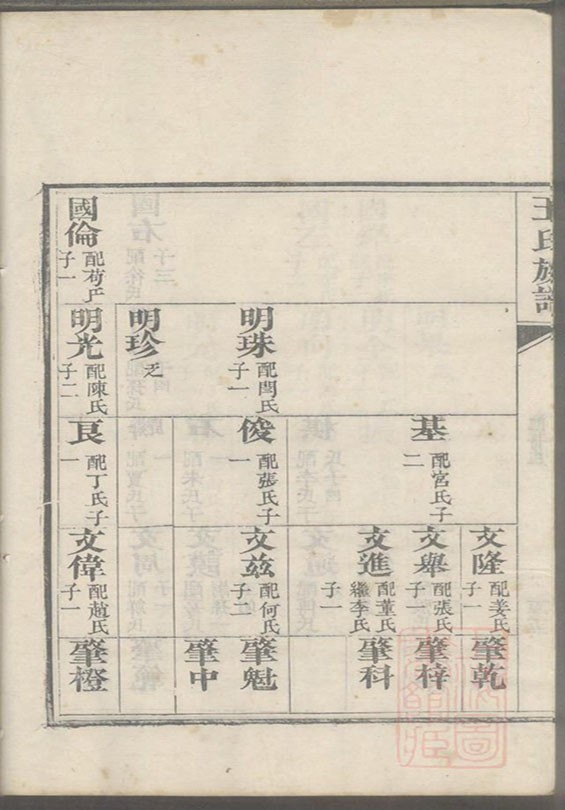 王氏族譜
文隆 配姜氏 子一
肇乾
基 配宮氏子二
文舉 配張氏 子一
肇梓
文進 配董氏 繼李氏 子一
肇科
明珠 配閆氏 子一
俊 配張氏子一
文兹 配何氏 子一
肇魁
肇中
明珍 乏
國倫 配苟氏 子一
明光 配陳氏 子二
良 配丁氏子一
文偉 配趙氏 子一
肇橙